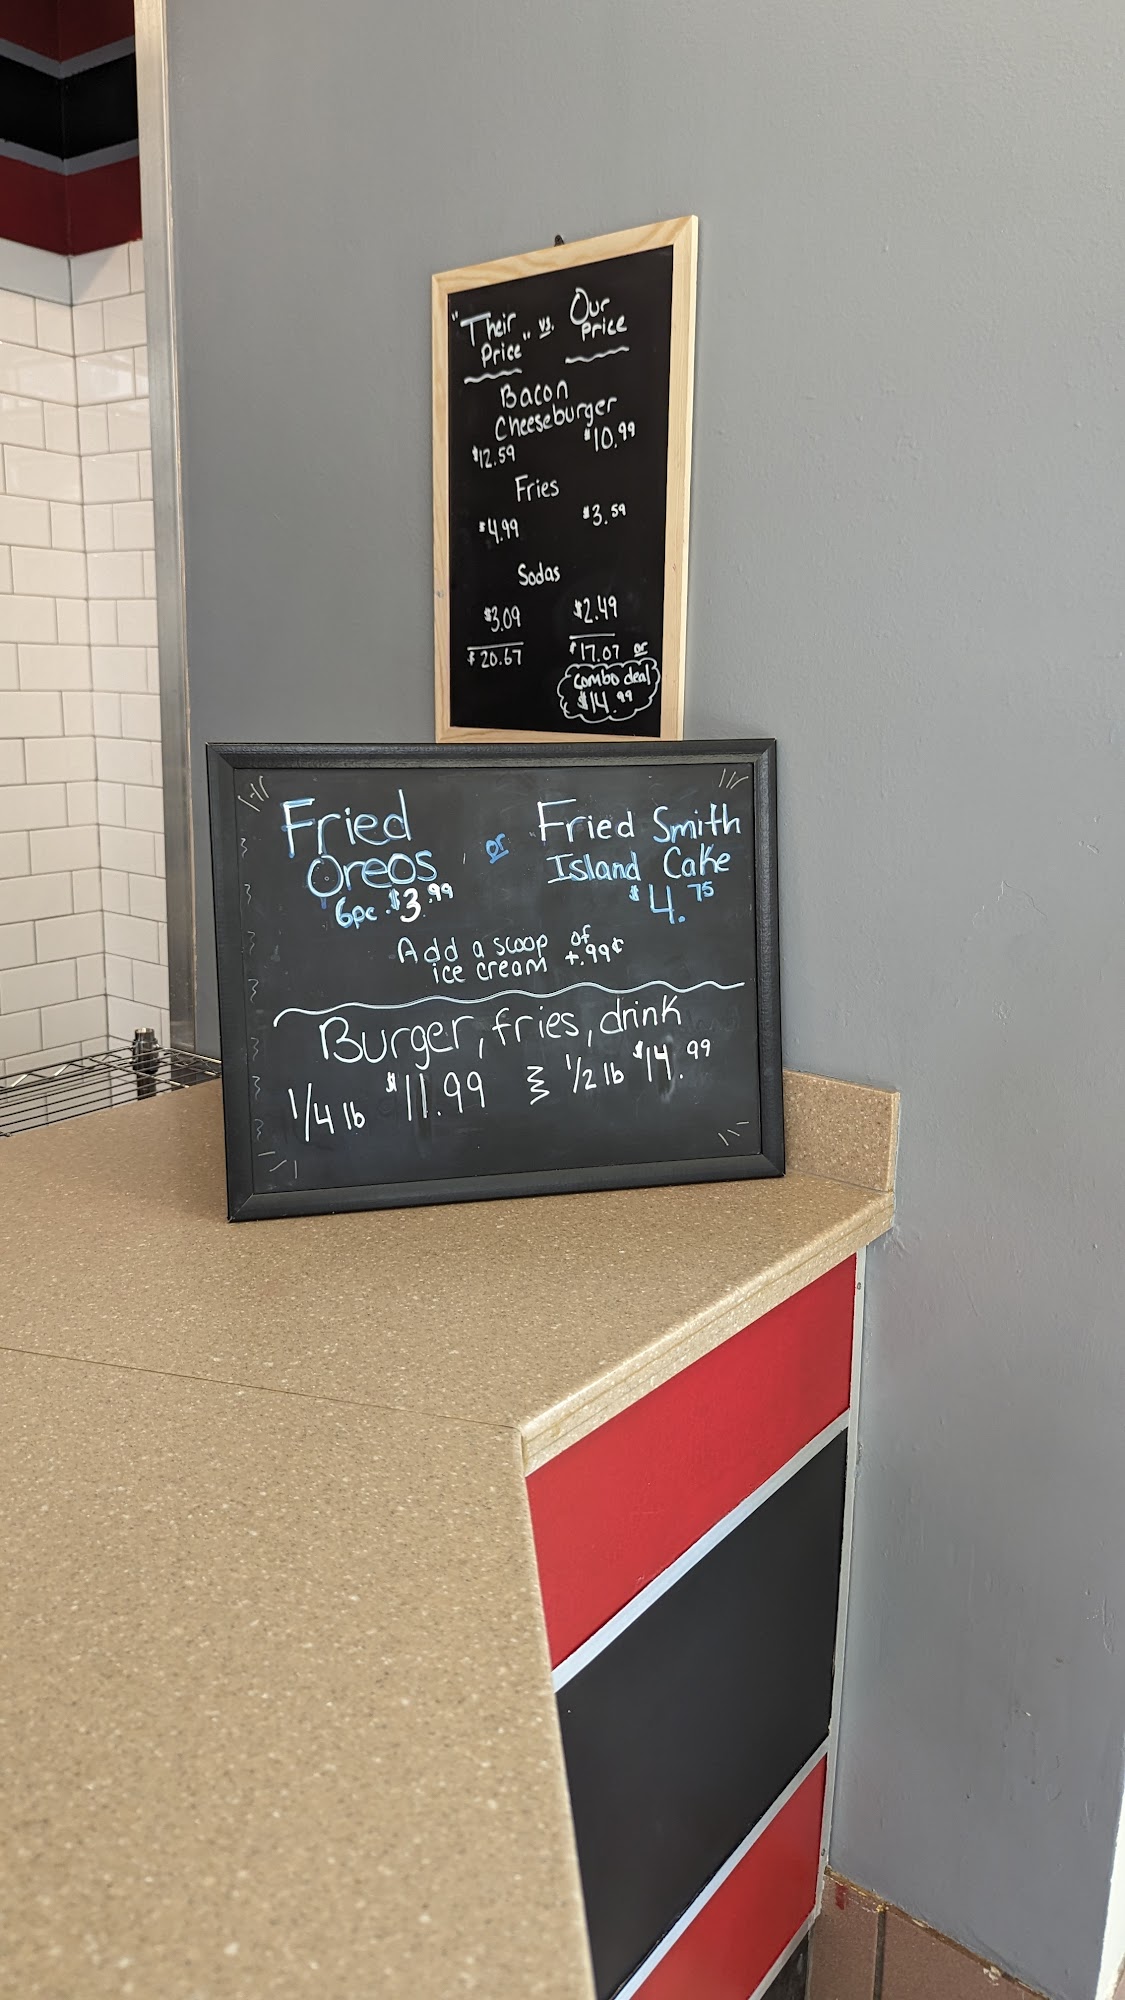 "Their Price" vs. Our Price
Bacon
Cheeseburger
$12.59 $10.99
Fries
$4.99 $3.59
Sodas
$3.09 $2.49
$20.67 $17.07 or
combo deal
$14.99
Fried Oreos 6pc. $3.99 or Fried Smith Island Cake $4.75
Add a scoop of
ice cream +.99¢
Burger, fries, drink
1/4 lb $11.99 1/2 lb $14.99